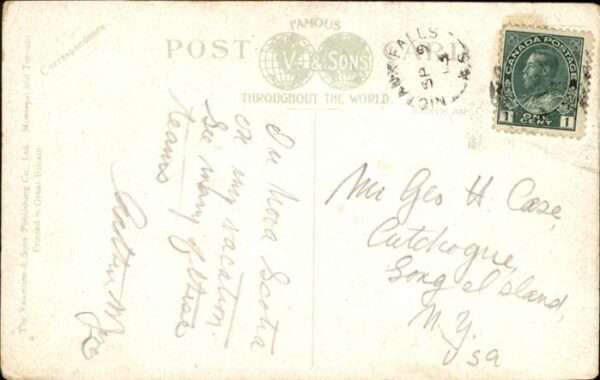 FAMOUS
POST CARD
V & SONS
THROUGHOUT THE WORLD
Correspondence.
The Valentine & Sons Publishing Co., Ltd. Montreal and Toronto
Printed in Great Britain
NICTAUX FALLS
SP 9
13
N.S.
CANADA POSTAGE
1 ONE CENT 1
In Nova Scotia
on my vacation.
See many of these
teams
Mr Geo H. Case,
Cutchogue,
Long Island,
N. Y.
USA